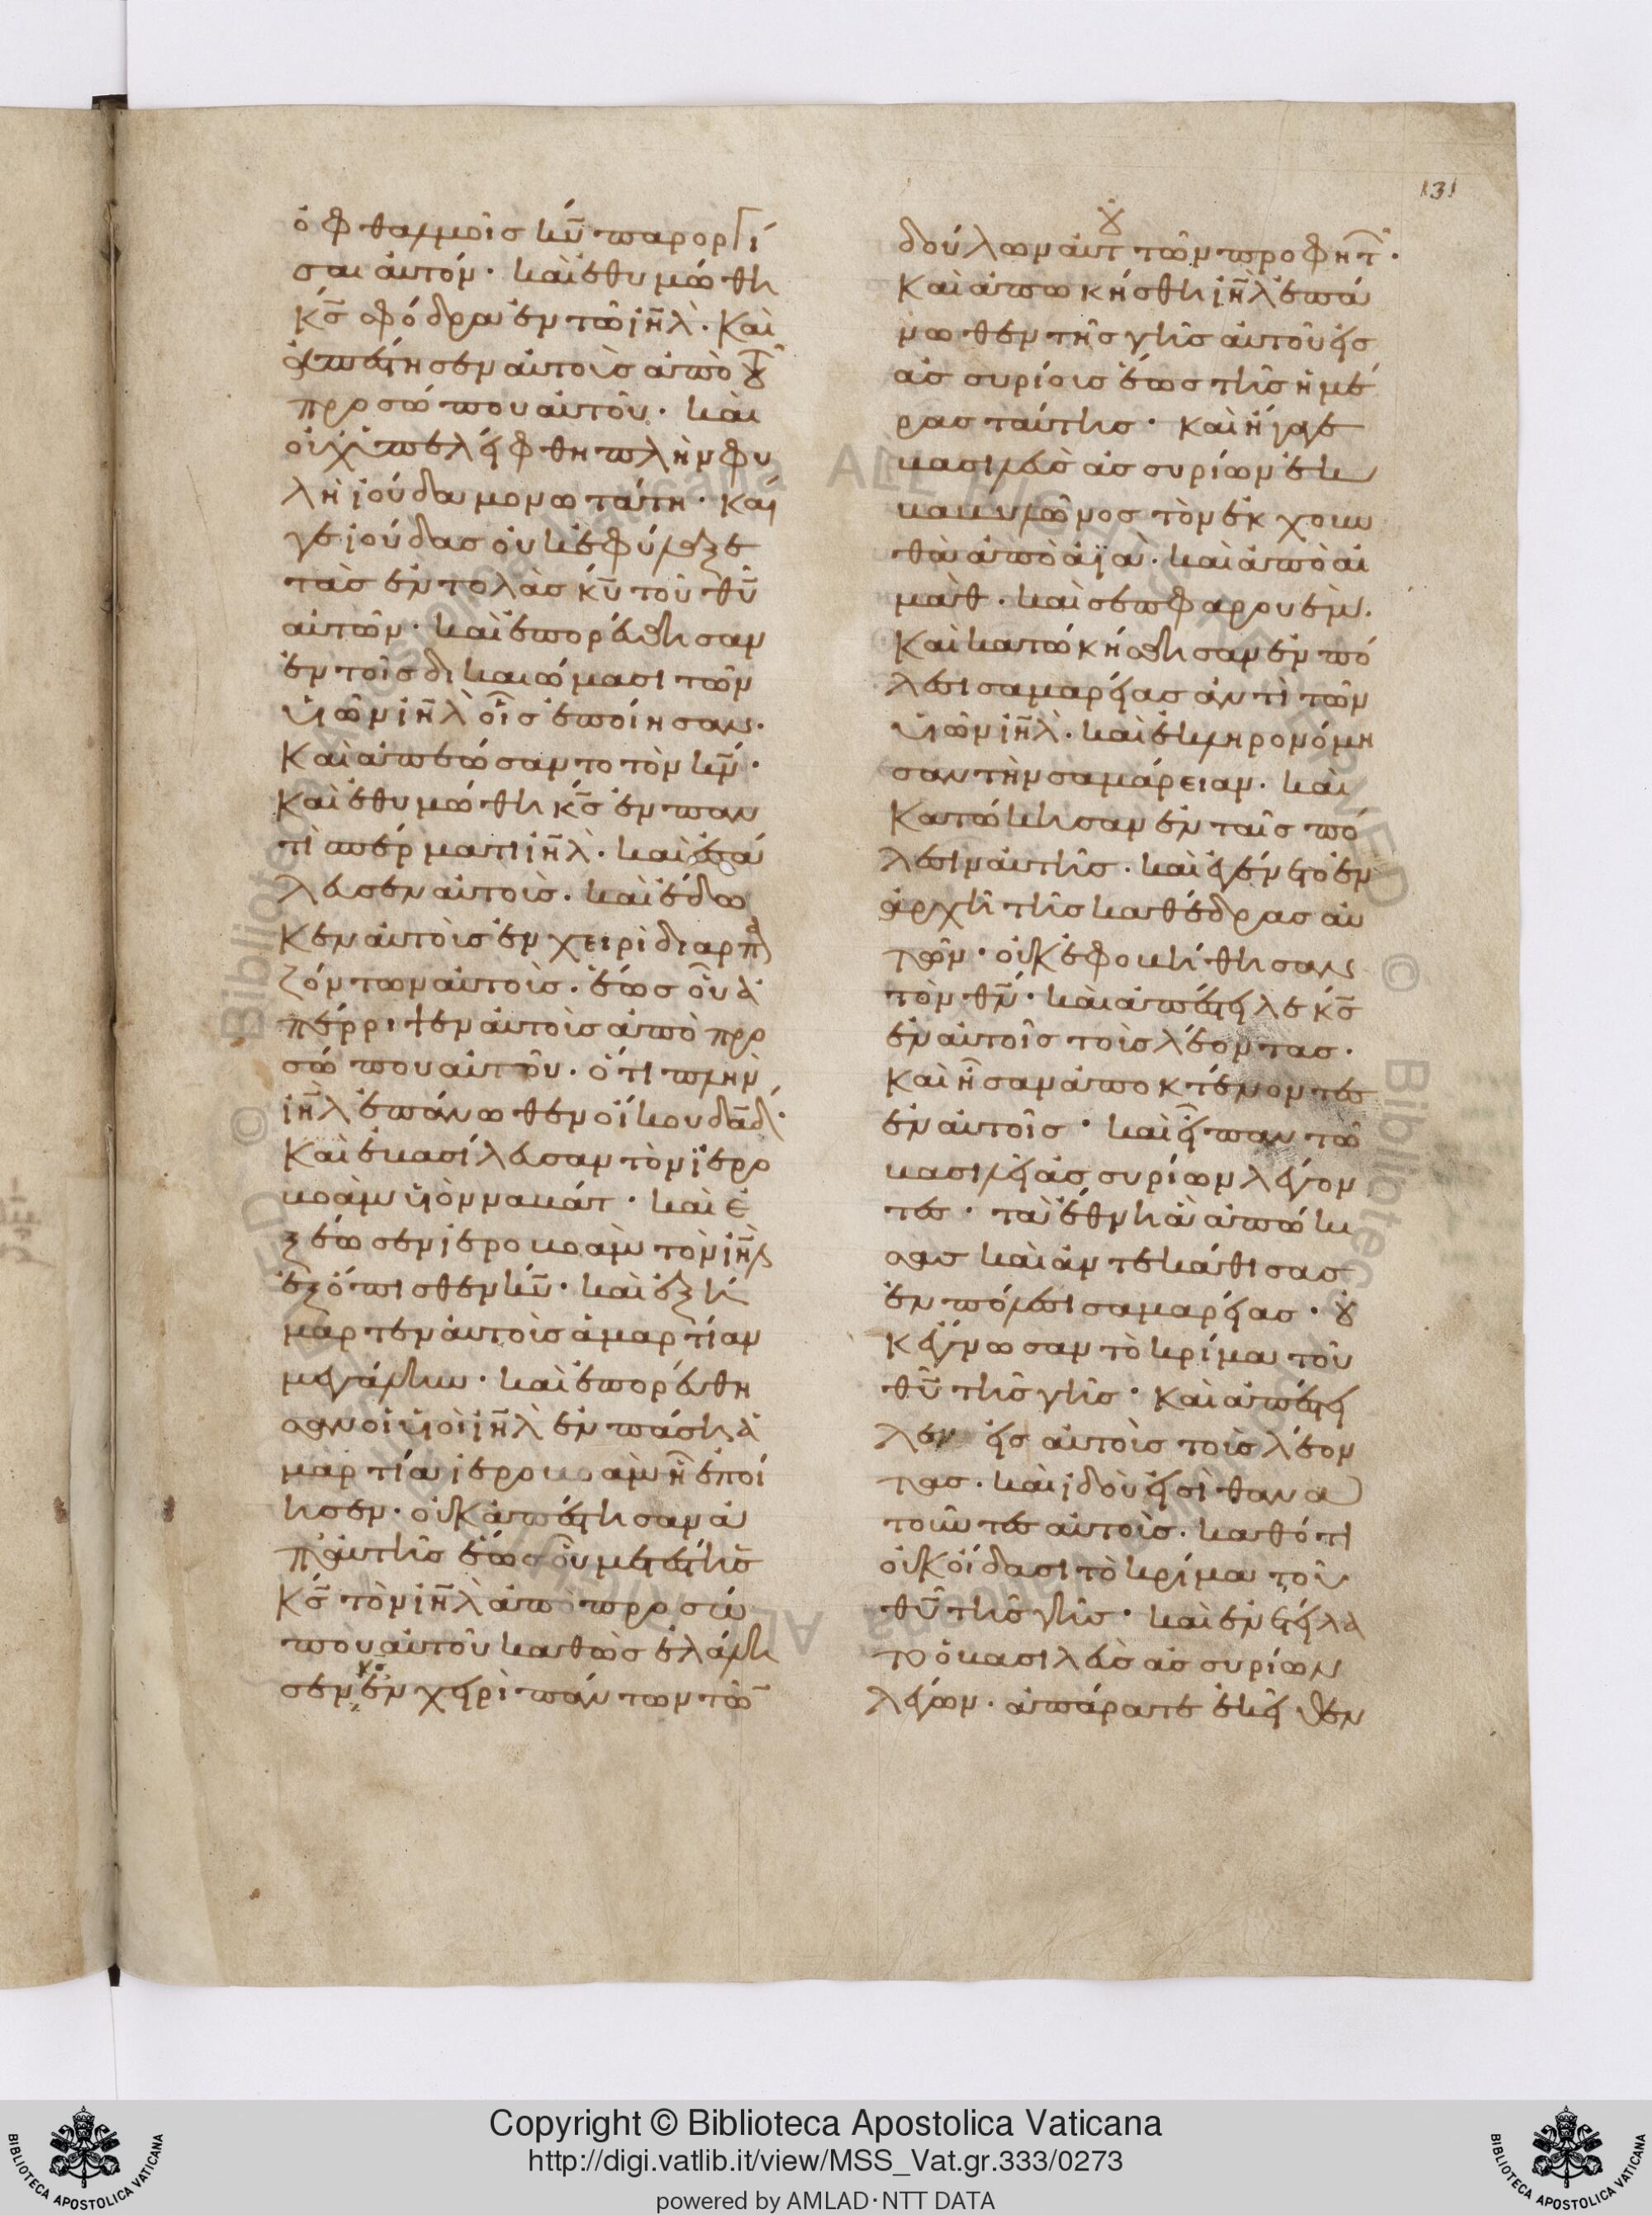 131
ὀφθαλμοῖσ κυ̅ παροργί
σαι αὐτόν· καὶ ἐθυμώθη
κσ̅ σφόδρα ἐν τῶ ιηλ̅. Καὶ
ἀπέστησεν αὐτοὺσ ἀπὸ τοῦ
προσώπου αὐτοῦ· καὶ
οὐχ ὑπελείφθη πλὴν φυ
λὴ ἰούδα μονωτάτη· καί
γε ἰούδασ οὐκ ἐφύλαξε
τὰσ ἐντολὰσ κυ̅ τοῦ θυ̅
αὐτῶν· καὶ ἐπορεύθησαν
ἐν τοῖσ δικαιώμασι τῶν
υἱῶν ιηλ̅ οἷσ ἐποίησαν.
Καὶ ἀπεώσαντο τὸν κν̅·
Καὶ ἐθυμώθη κσ̅ ἐν παν
τὶ σπέρματι ιηλ̅. καὶ ἐσά
λευσεν αὐτούσ. καὶ ἔδω
κεν αὐτοὺσ ἐν χειρὶ διαρπα
ζόντων αὐτούσ. ἕωσ οὗ ἀ
πέρριψεν αὐτοὺσ ἀπὸ προ
σώπου αὐτοῦ. ὅτι πλὴν
ιηλ̅ ἐπάνωθεν οἴκου δαδ̅·
Καὶ ἐβασίλευσαν τὸν ἱερο
βοὰμ υἱὸν ναβάτ· καὶ ἐ
ξέωσεν ἱεροβοὰμ τὸν ιηλ̅
ἐξόπισθεν κυ̅· καὶ ἐξή
μαρτεν αὐτοὺσ ἁμαρτίαν
μεγάλην· καὶ ἐπορεύθη
σαν οἱ υἱοὶ ιηλ̅ ἐν πάση ἁ
μαρτία ἱεροβοὰμ ἧ ἐποί
ησεν· οὐκ ἀπέστησαν ἀ
π' αὐτῆσ ἕωσ οὗ μετέστησε
κσ̅ τὸν ιηλ̅ ἀπὸ προσώ
που αὐτοῦ καθὼσ ἐλάλη
σεν κσ̅ ἐν χειρὶ πάντων τῶν
δούλων αὐτοῦ τῶν προφητῶν·
Καὶ ἀπωκήσθη ιηλ̅ ἐπά
νωθεν τῆσ γῆσ αὐτοῦ εἰσ
ἀσσυρίουσ ἕωσ τῆσ ἡμέ
ρασ ταύτησ· καὶ ἤγαγε
βασιλεὺσ ἀσσυρίων ἐκ
βαβυλῶνοσ τὸν ἐκ χου
θὰ ἀπὸ ἀϊὰ. καὶ ἀπὸ αἰ
μὰθ. καὶ σεπφαρουέμ.
Καὶ κατωκήσθησαν ἐν πό
λεσι σαμαρείασ ἀντὶ τῶν
υἱῶν ιηλ̅. καὶ ἐκληρονόμη
σαν τὴν σαμάρειαν. καὶ
Κατώκησαν ἐν ταῖσ πό
λεσιν αὐτῆσ. καὶ ἐγένετο ἐν
ἀρχῆ τῆσ καθέδρασ αὐ
τῶν· οὐκ ἐφοβήθησαν
τὸν θν̅· καὶ ἀπέστειλε κσ̅
ἐν αὐτοῖσ τοὺσ λέοντασ.
Καὶ ἦσαν ἀποκτένοντεσ
ἐν αὐτοῖσ· καὶ εἶπαν τῶ
βασιλεῖ ἀσσυρίων λέγον
τεσ· τὰ ἔθνη ἃ ἀπώκι
σασ καὶ ἀντεκάθισασ
ἐν πόλεσι σαμαρείασ· οὐ
κ ἔγνωσαν τὸ κρίμα τοῦ
θυ̅ τῆσ γῆσ· καὶ ἀπέστει
λεν εἰσ αὐτοὺσ τοὺσ λέον
τασ. καὶ ἰδού εἰσὶ θανα
τοῦντεσ αὐτούσ. καθότι
οὐκ οἴδασι τὸ κρίμα τοῦ
θυ̅ τῆσ γῆσ· καὶ ἐνετείλα
το ὁ βασιλεὺσ ἀσσυρίων
λέγων. ἀπάρατε ἐκεῖθεν
Copyright © Biblioteca Apostolica Vaticana
http://digi.vatlib.it/view/MSS_Vat.gr.333/0273
powered by AMLAD·NTT DATA
BIBLIOTECA APOSTOLICA VATICANA
BIBLIOTECA APOSTOLICA VATICANA